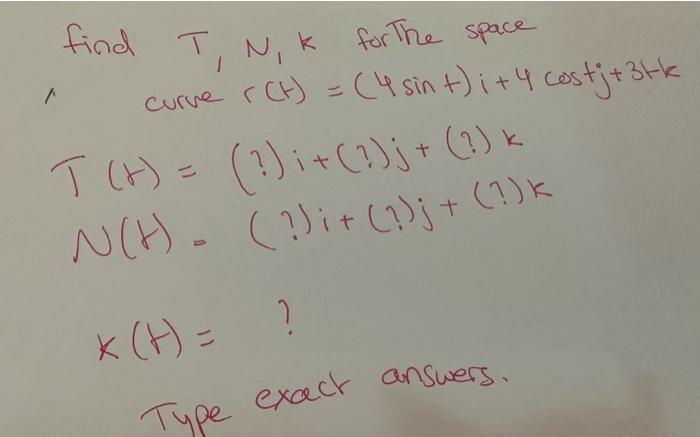 find T, N, K for The space
curve r(t) = (4 sin t) i + 4 cos t j + 3t k
T (t) = (?) i + (?) j + (?) k
N(t) = (?) i + (?) j + (?) k
K (t) = ?
Type exact answers.